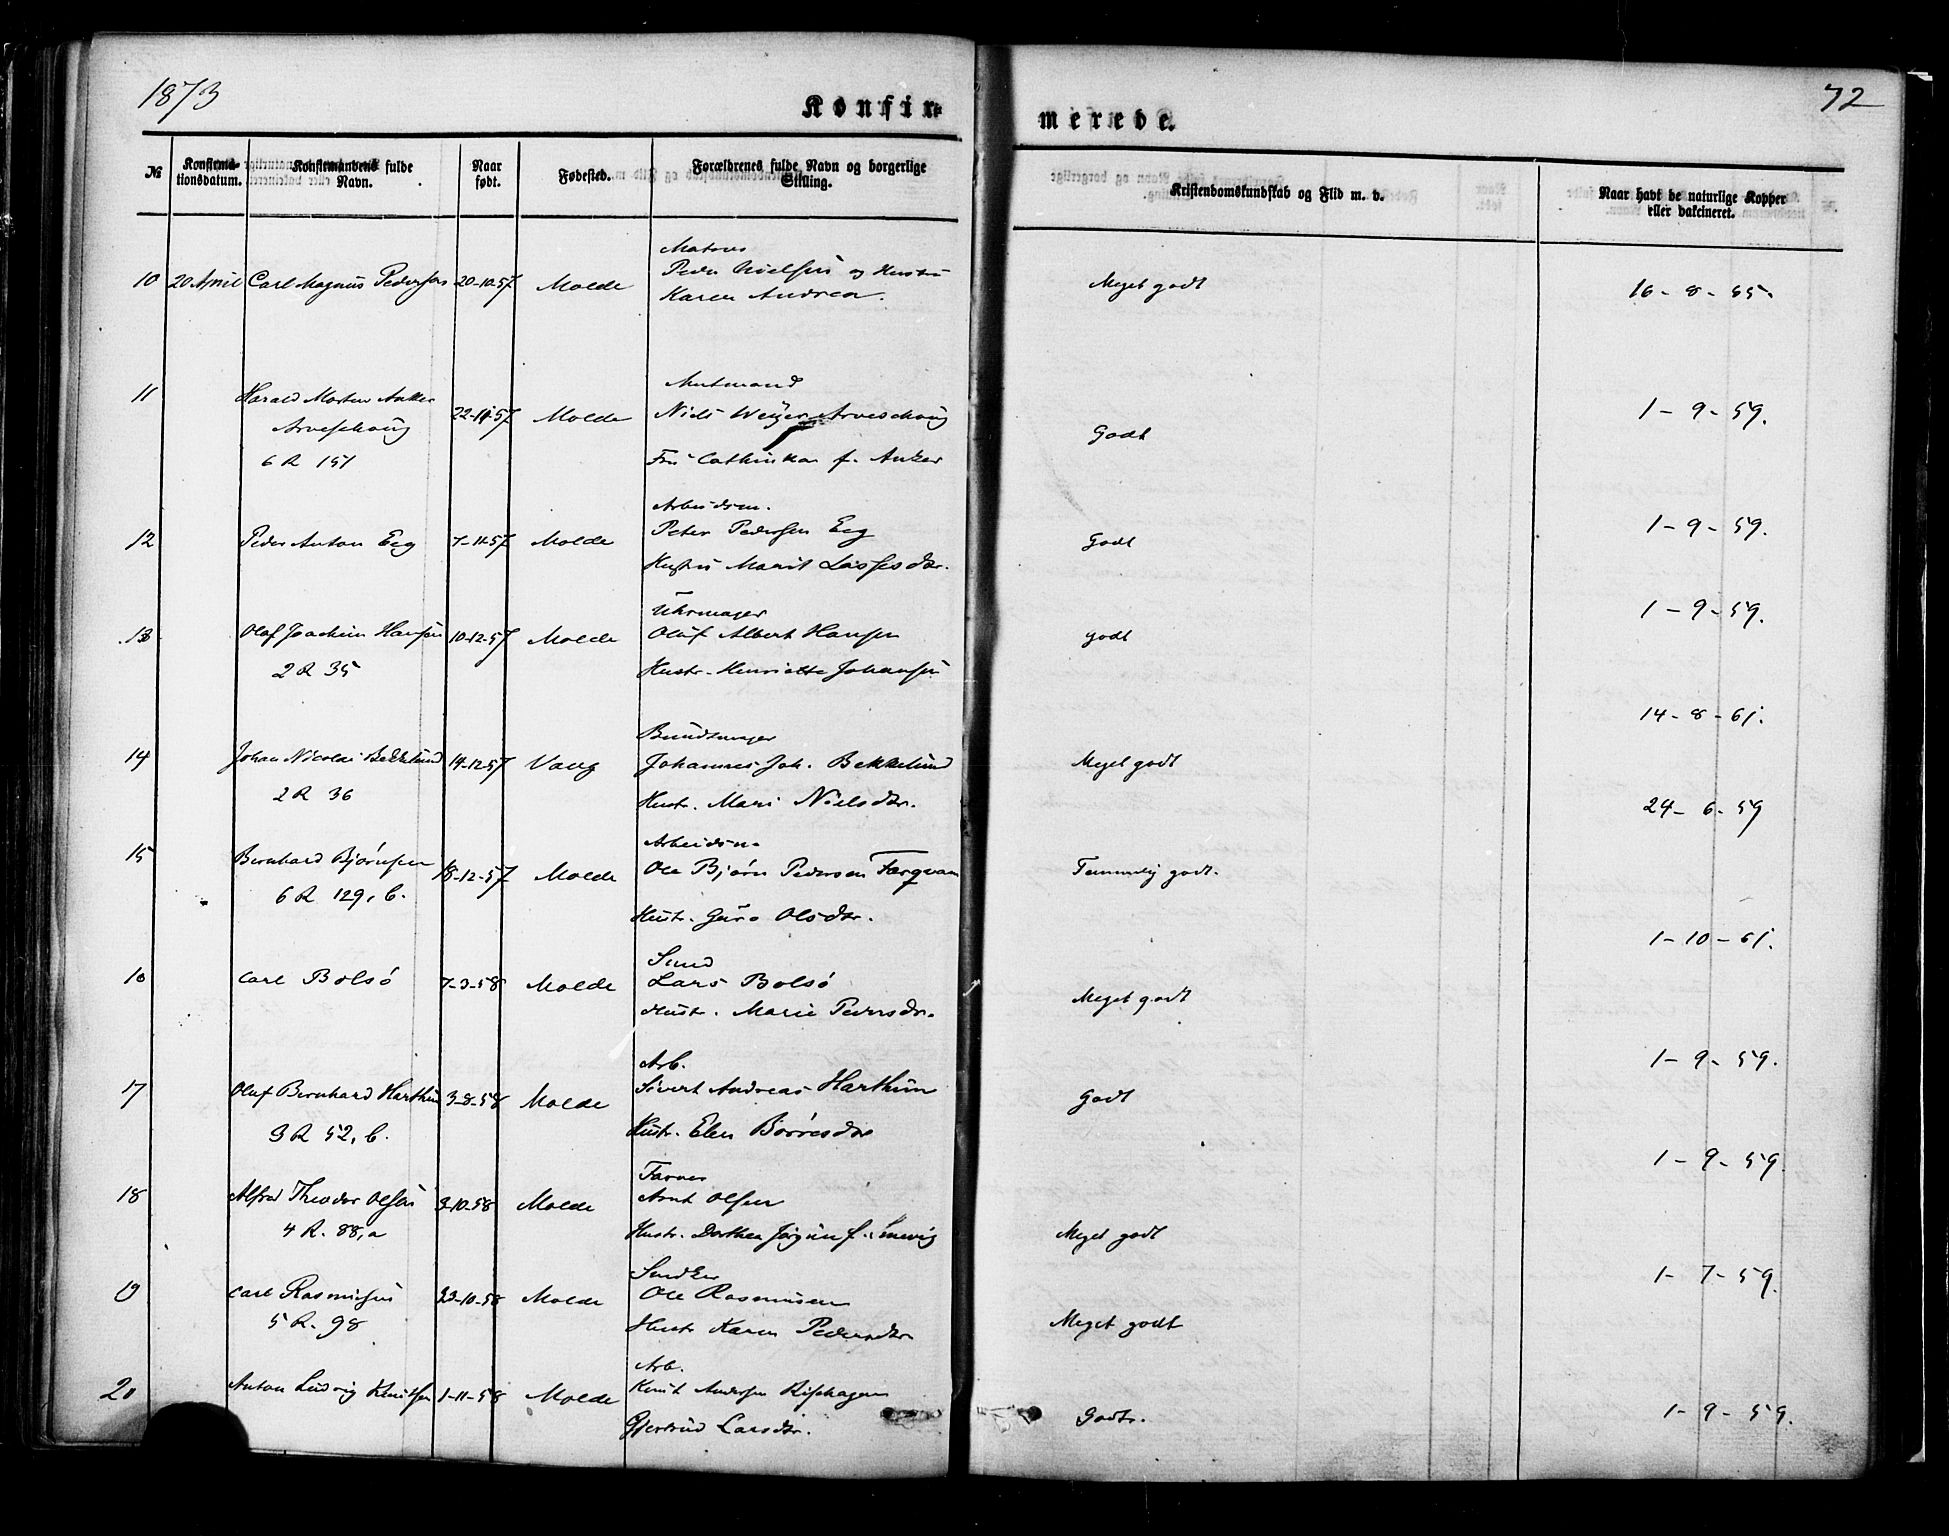 1873
72
Konfir-
merede.
№
Konfirma-
tionsdatum.
Konfirmandens fulde
Navn.
Naar
født.
Fødested.
Forældrenes fulde Navn og borgerlige
Stilling.
Kristendomskundskab og Flid m. v.
Naar havt de naturlige Kopper
eller vakcineret.
Matros
10 20 April Carl Magnus Pedersen 20-10-57 Molde Peder Nielsen og Hustru
Karen Andrea.
Meget godt
16-8-65.
11 Harald Morten Anker
Arveschoug
6 R 151
22-11-57 Molde
Amtmand
Niels Weyer Arveschoug
Fru Cathinka f. Anker
Godt
1-9-59.
12 Peder Anton Eeg 7-11-57 Molde
Arbeidsm.
Peter Pedersen Eeg
Hustru Marit Lassesdtr.
Godt
1-9-59.
13 Olaf Joachim Hansen 10-12-57 Molde
2 R 35
Uhrmager
Oluf Albert Hansen
Hustr. Henriette Johansen
godt
1-9-59.
14 Johan Nicolai Bekkelund 14-12-57 Vang
2 R 36
Bundtmager
Johannes Joh. Bekkelund
Hustr. Mari Nielsdtr.
Meget godt
14-8-61.
15 Bernhard Bjørnsen 18-12-57 Molde
6 R 129, b.
Arbeidsm.
Ole Bjørn Pedersen
Hustr. Guro Olsdtr.
Temmelig godt.
24-6-59
16 Carl Bolsø 7-3-58 Molde
Smed
Lars Bolsø
Hustr. Marie Pedersdtr.
Meget godt
1-10-61.
17 Oluf Bernhard Harthun 3-8-58 Molde
3 R 52, b.
Arb.
Sivert Andreas Harthun
Hustr. Elen Børresdtr
Godt
1-9-59.
18 Alfred Theodor Olsen 3-10-58 Molde
4 R. 88, a
Farver
Arnt Olsen
Hustr. Dorthea Jørgine f.
Meget godt
1-9-59.
19 Carl Rasmusen 23-10-58 Molde
5 R. 98
Snedker
Ole Rasmusen
Hustr Karen Pedersdtr
Meget godt
1-7-59.
20 Anton Ludvig Knutsen 1-11-58 Molde
Arb.
Knut Andersen Rishagen
Gjertrud Larsdtr.
Godt.
1-9-59.